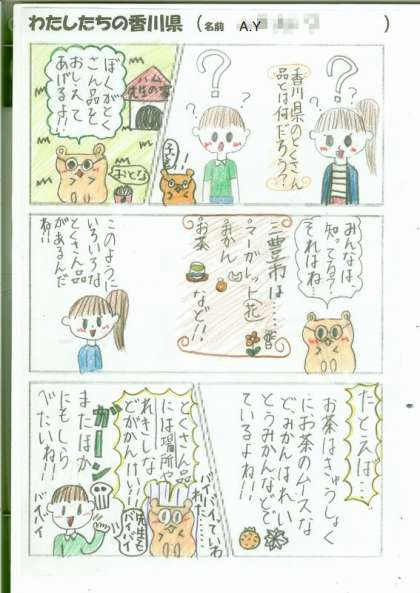 わたしたちの香川県 (名前 A.Y )
香川県のとくさん
品とは何だろう?
ぼくがとく
さん品を
おしえて
あげるよ…
ハム
先生の家
おとな
みんなは、
知ってる?
それはね…
三豊市は……
マーガレット(花)
みかん
お茶
など!!
このように
いろいろな
とくさん品
があるんだ
ね!!
たとえば…
お茶はきゅうしょく
にお茶のムースな
ど、みかんはれい
とうみかんなどで
ているよね!!
とくさん品
には場所や
れきしな
どがかんけい!!
バイバイっていわ
れた……
先生も
バイバイ
ガーン
またほか
にもしら
べたいね!!
バイバイ